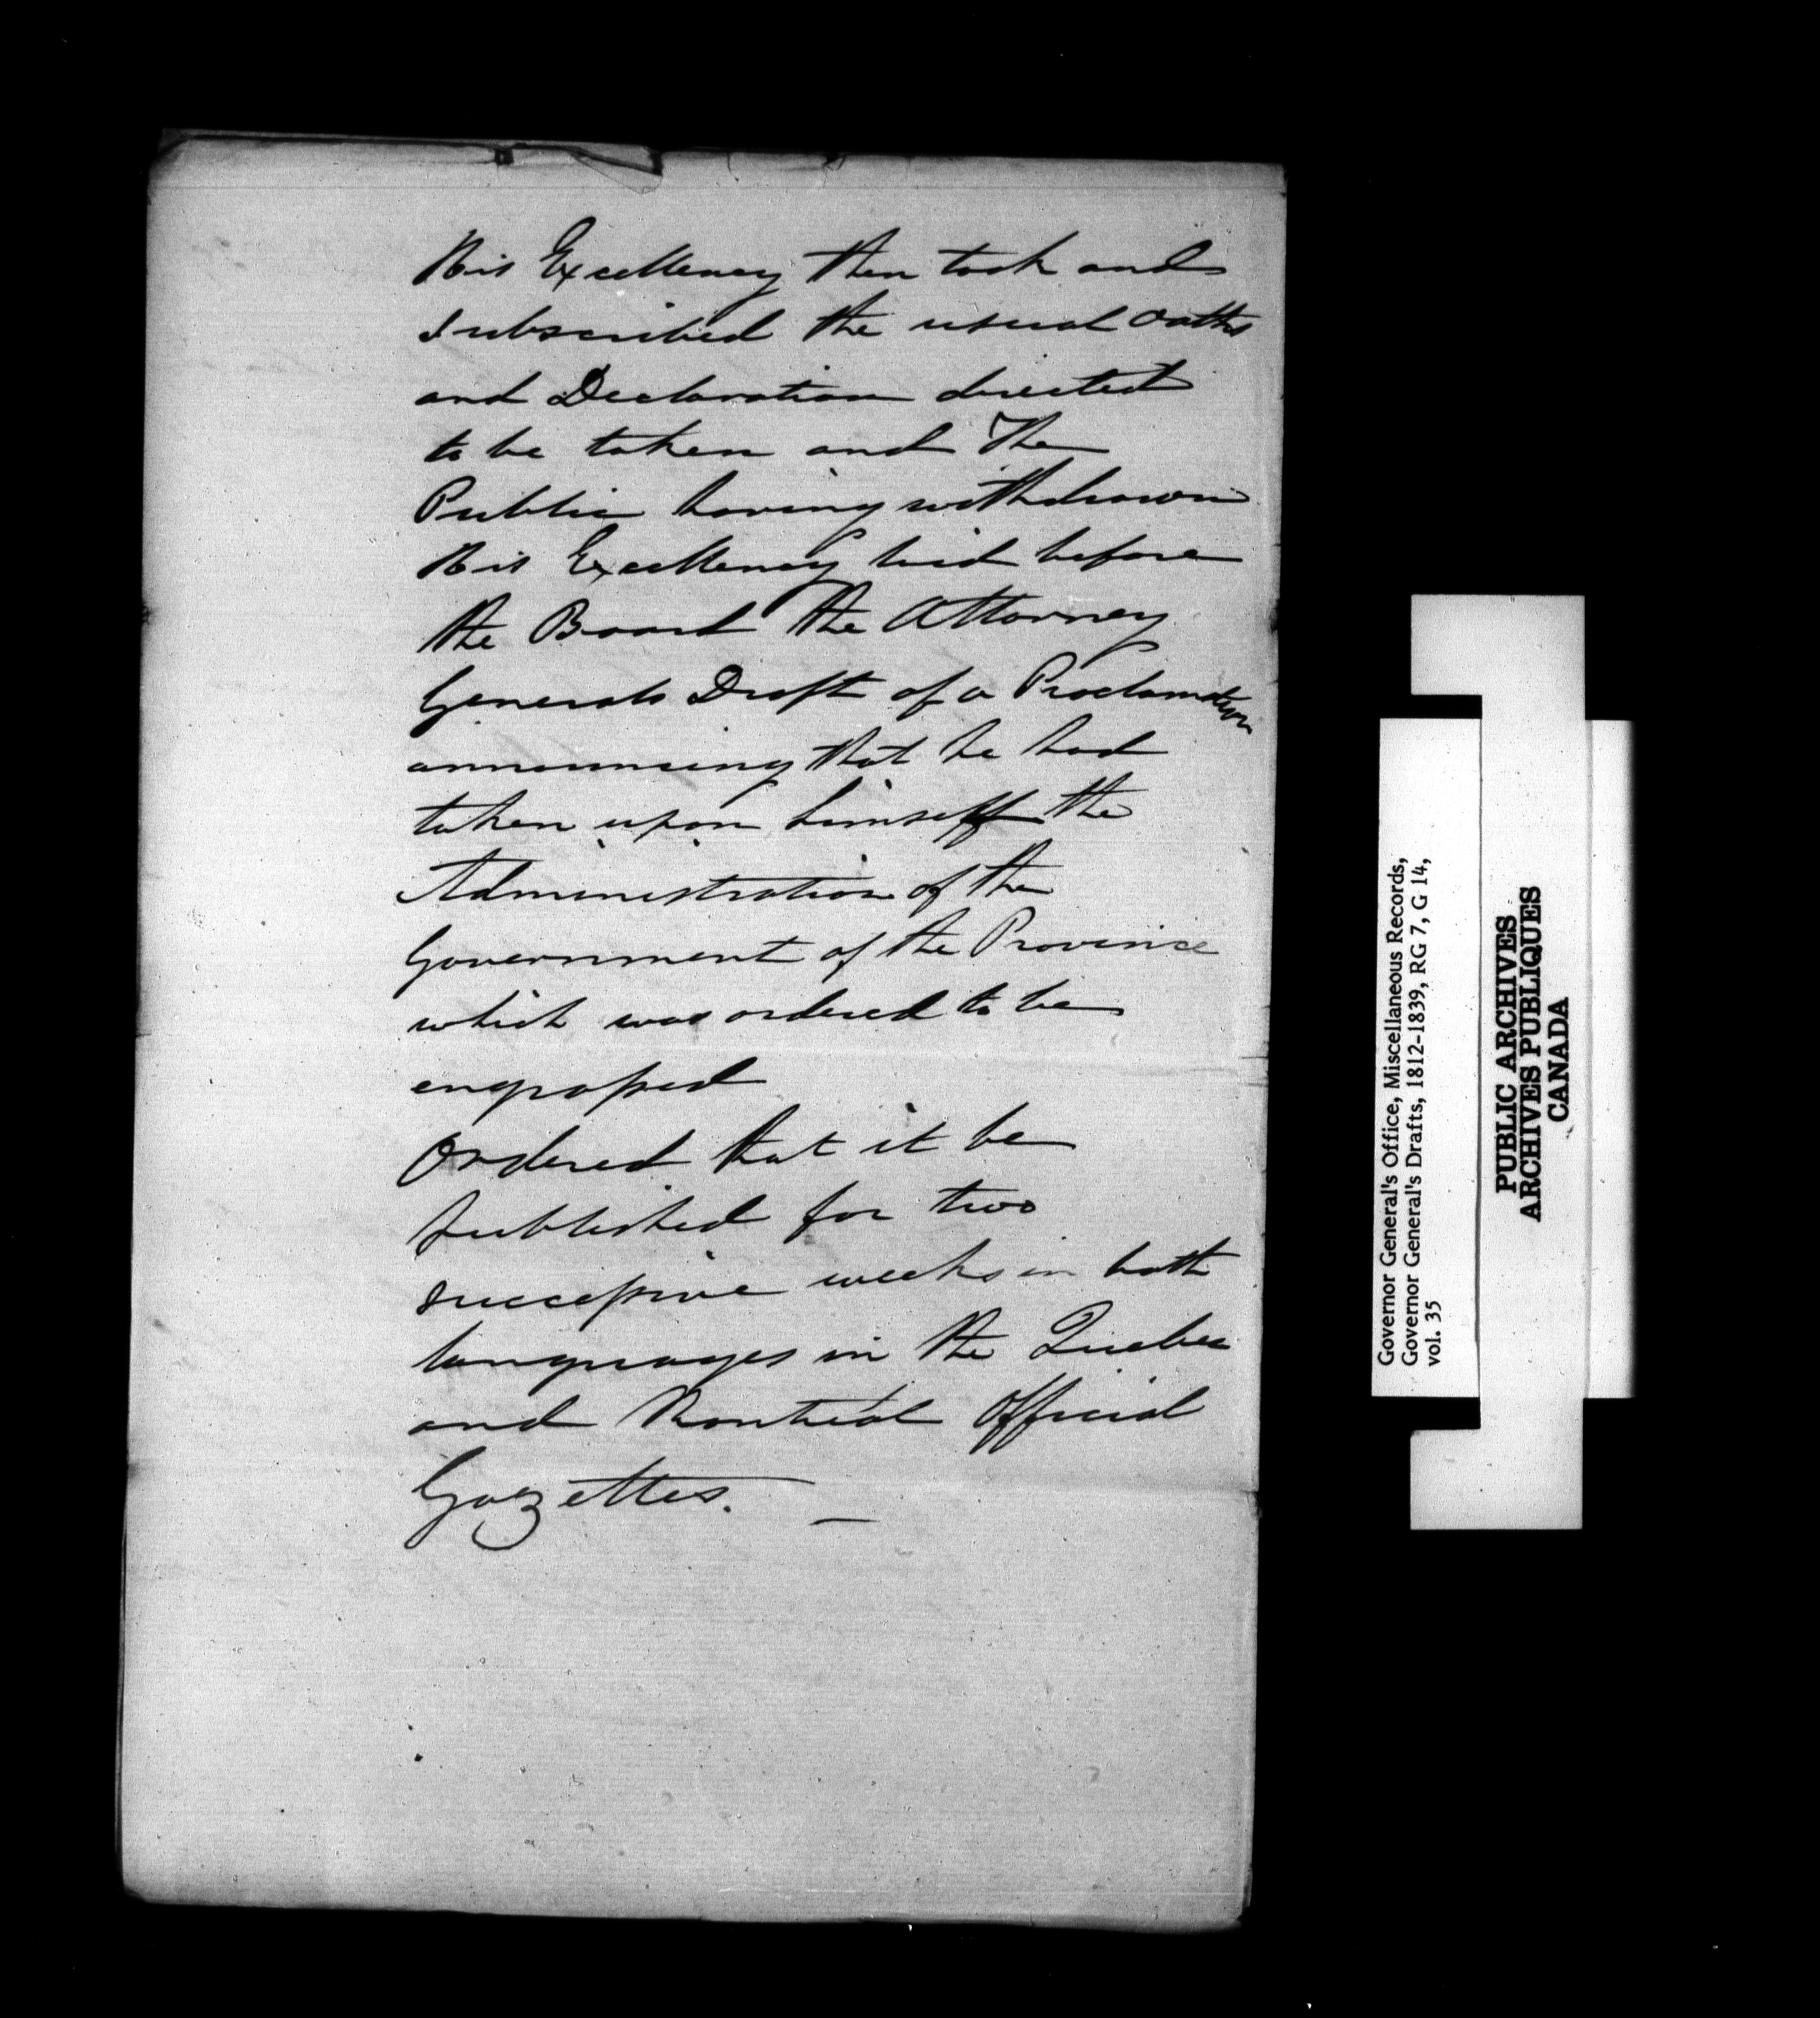 His Excellency then took and
subscribed the usual Oaths
and Declaration directed
to be taken and The
Public having withdrawn
His Excellency laid before
the Board the Attorney
Generals Draft of a Proclamation
announcing that he had
taken upon himself the
Administration of the
Government of the Province
which was ordered to be
engrossed
Ordered that it be
published for two
successive weeks in both
languages in the Quebec
and Montreal Official
Gazettes. —
Governor General's Office, Miscellaneous Records,
Governor General's Drafts, 1812-1839, RG 7, G 14,
vol. 35
PUBLIC ARCHIVES
ARCHIVES PUBLIQUES
CANADA